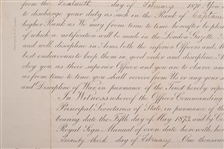 from the Sixteenth day of February 1870. You
to discharge your duty as such in the Rank of Captain
higher Rank as We may from time to time
of which a notification will be made in the London Gazette
and well discipline in Arms both the inferior Officers and
best endeavours to keep them in good order and discipline. A
obey you as their superior Officer and you to observe and
as from time to time you shall receive from Us or any your
and Discipline of War in pursuance of the Trust hereby repos
In Witness whereof the Officer Commanding
Principal Secretaries of State in pursuance of the
bearing date the Fifth day of May 1873 and by Co
Royal Sign Manual of even date herewith
Twenty third day of February One thousand